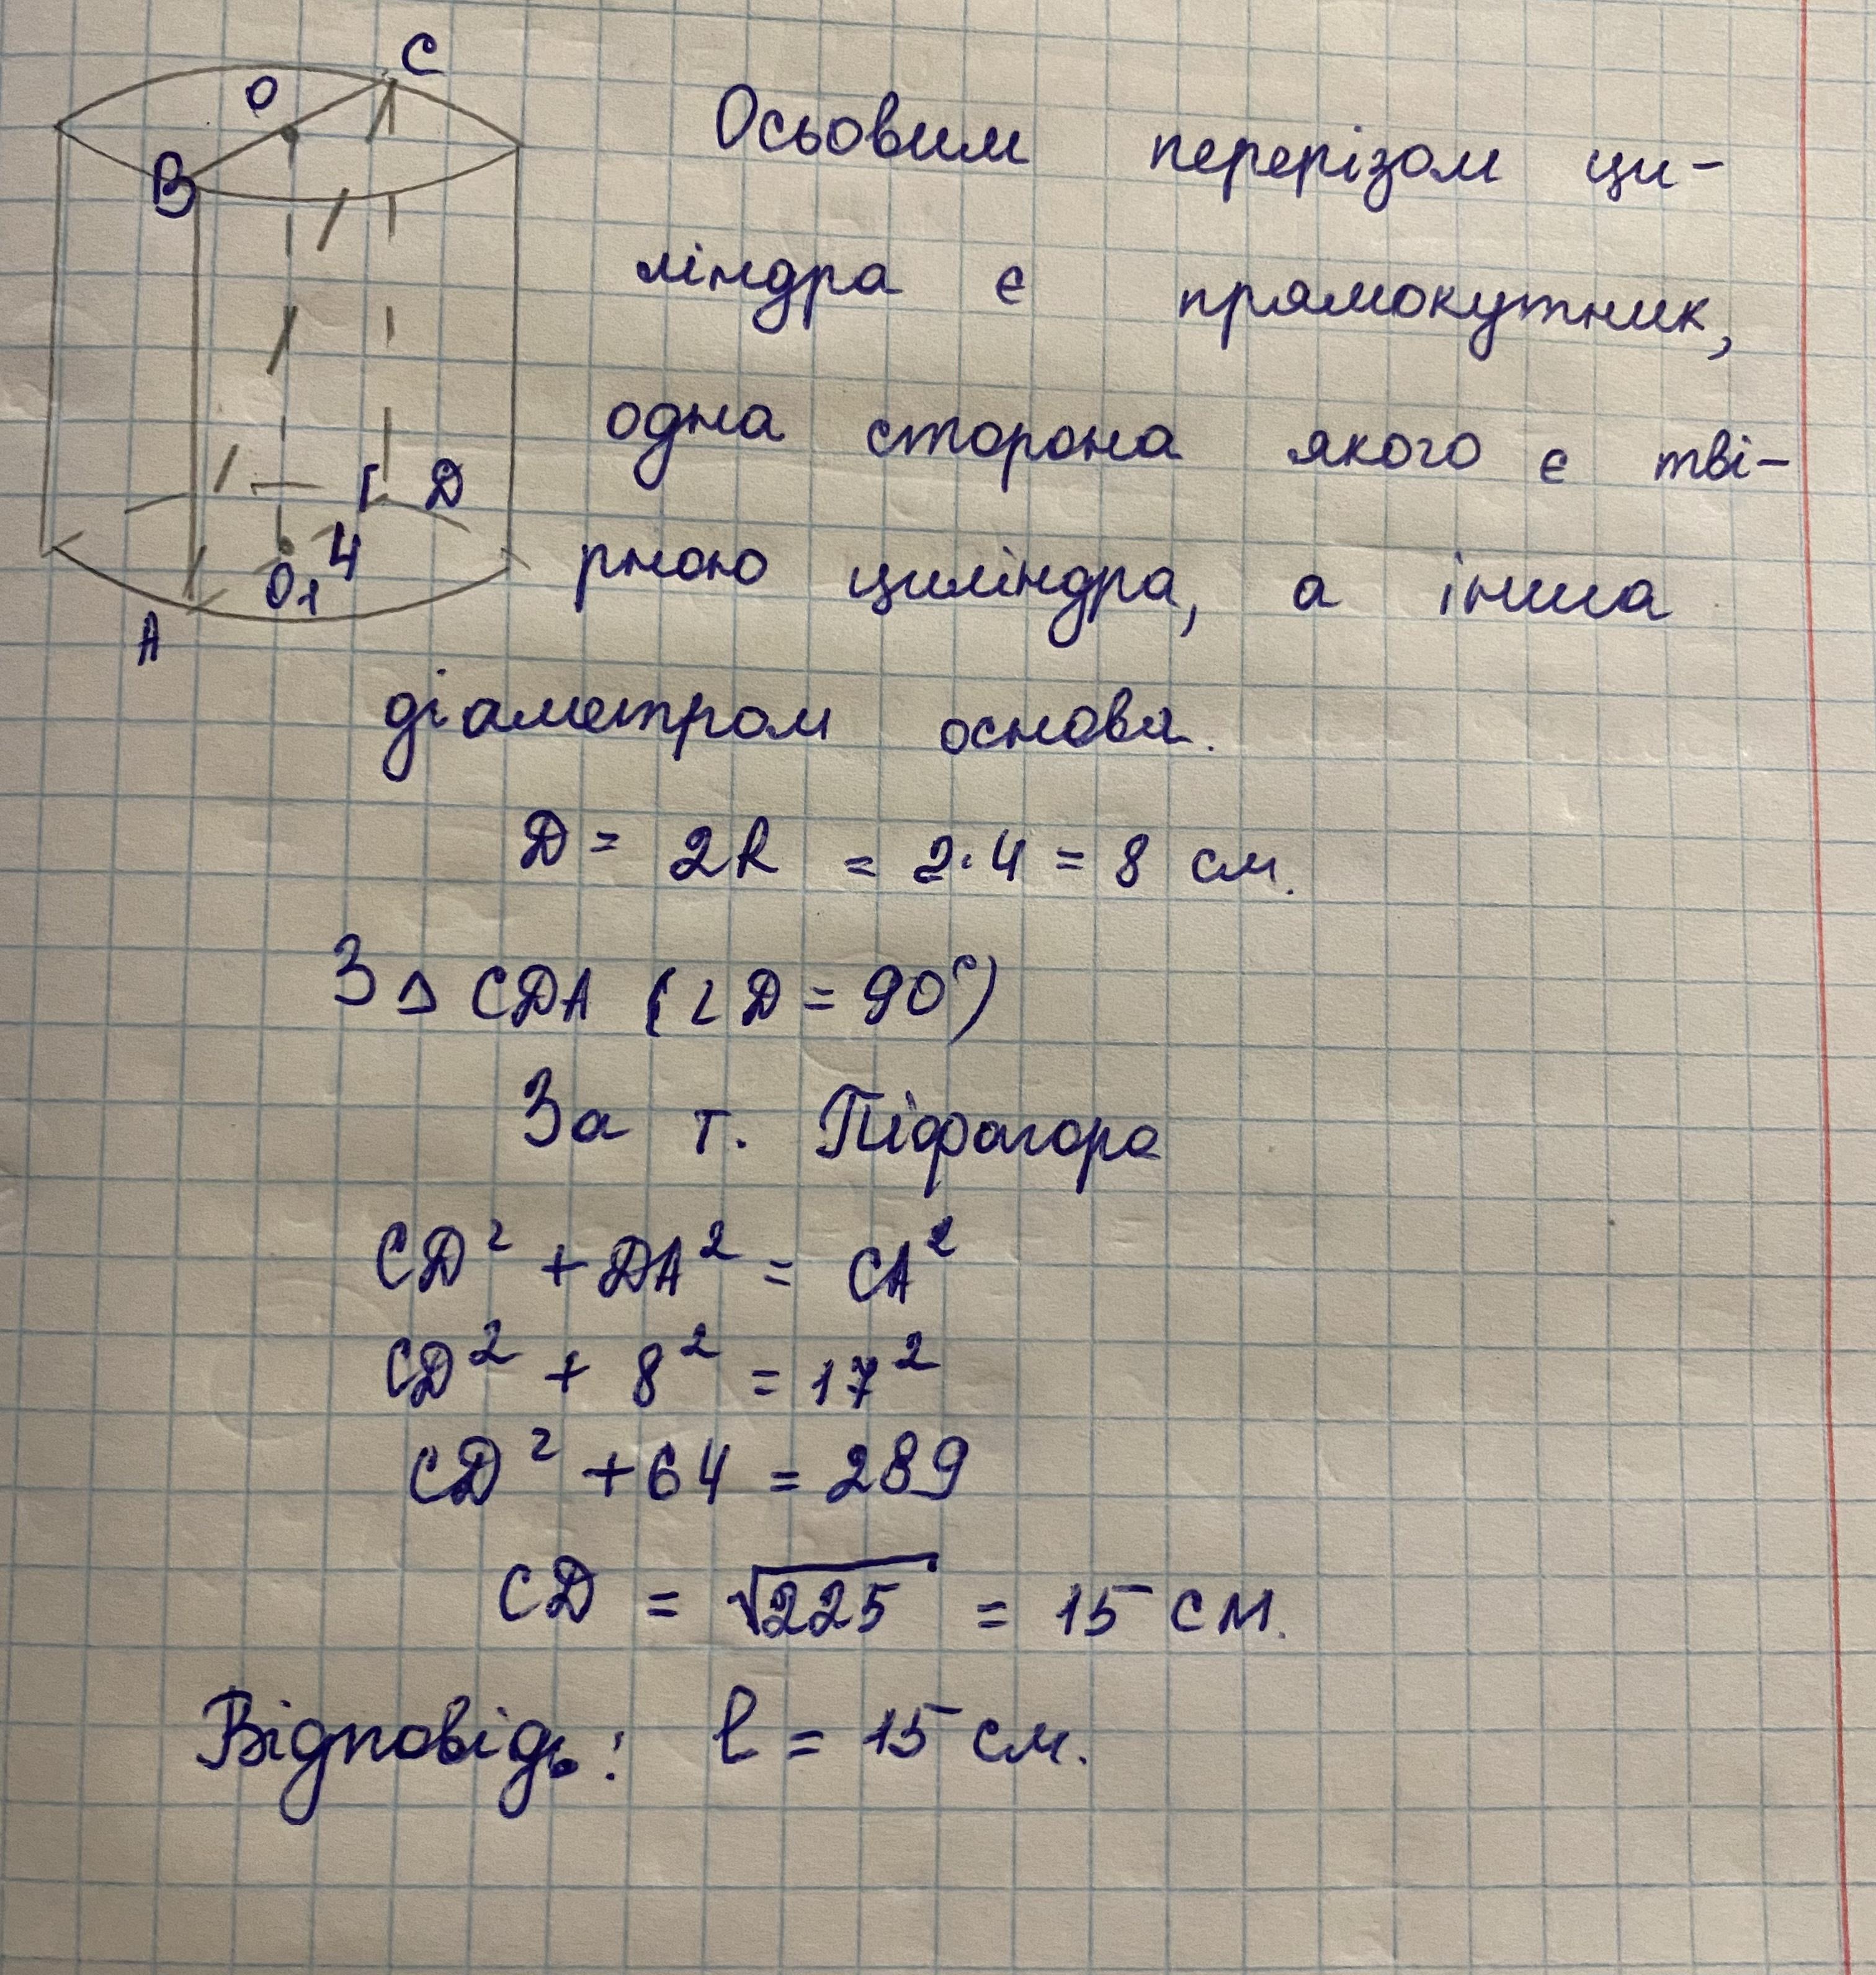 C
O
B
D
4
O₁
A
Осьовим перерізом ци-
ліндра є прямокутник,
одна сторона якого є тві-
рною циліндра, а інша
діаметром основи.
D = 2R = 2·4 = 8 см.
З △ CDA (∠D = 90°)
За т. Піфагора
CD² + DA² = CA²
CD² + 8² = 17²
CD² + 64 = 289
CD = √225 = 15 см.
Відповідь: l = 15 см.